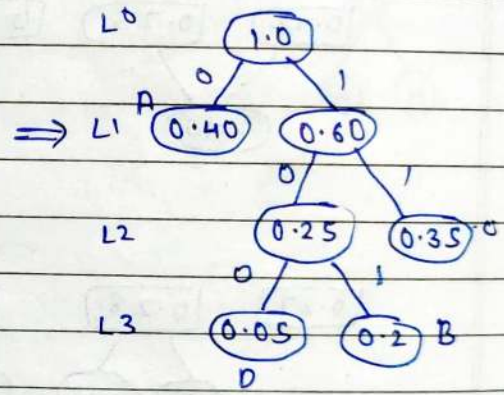 L0 1.0
0 1
A
⇒ L1 0.40 0.60
0 1
L2 0.25 0.35 C
0 1
L3 0.05 0.2 B
D